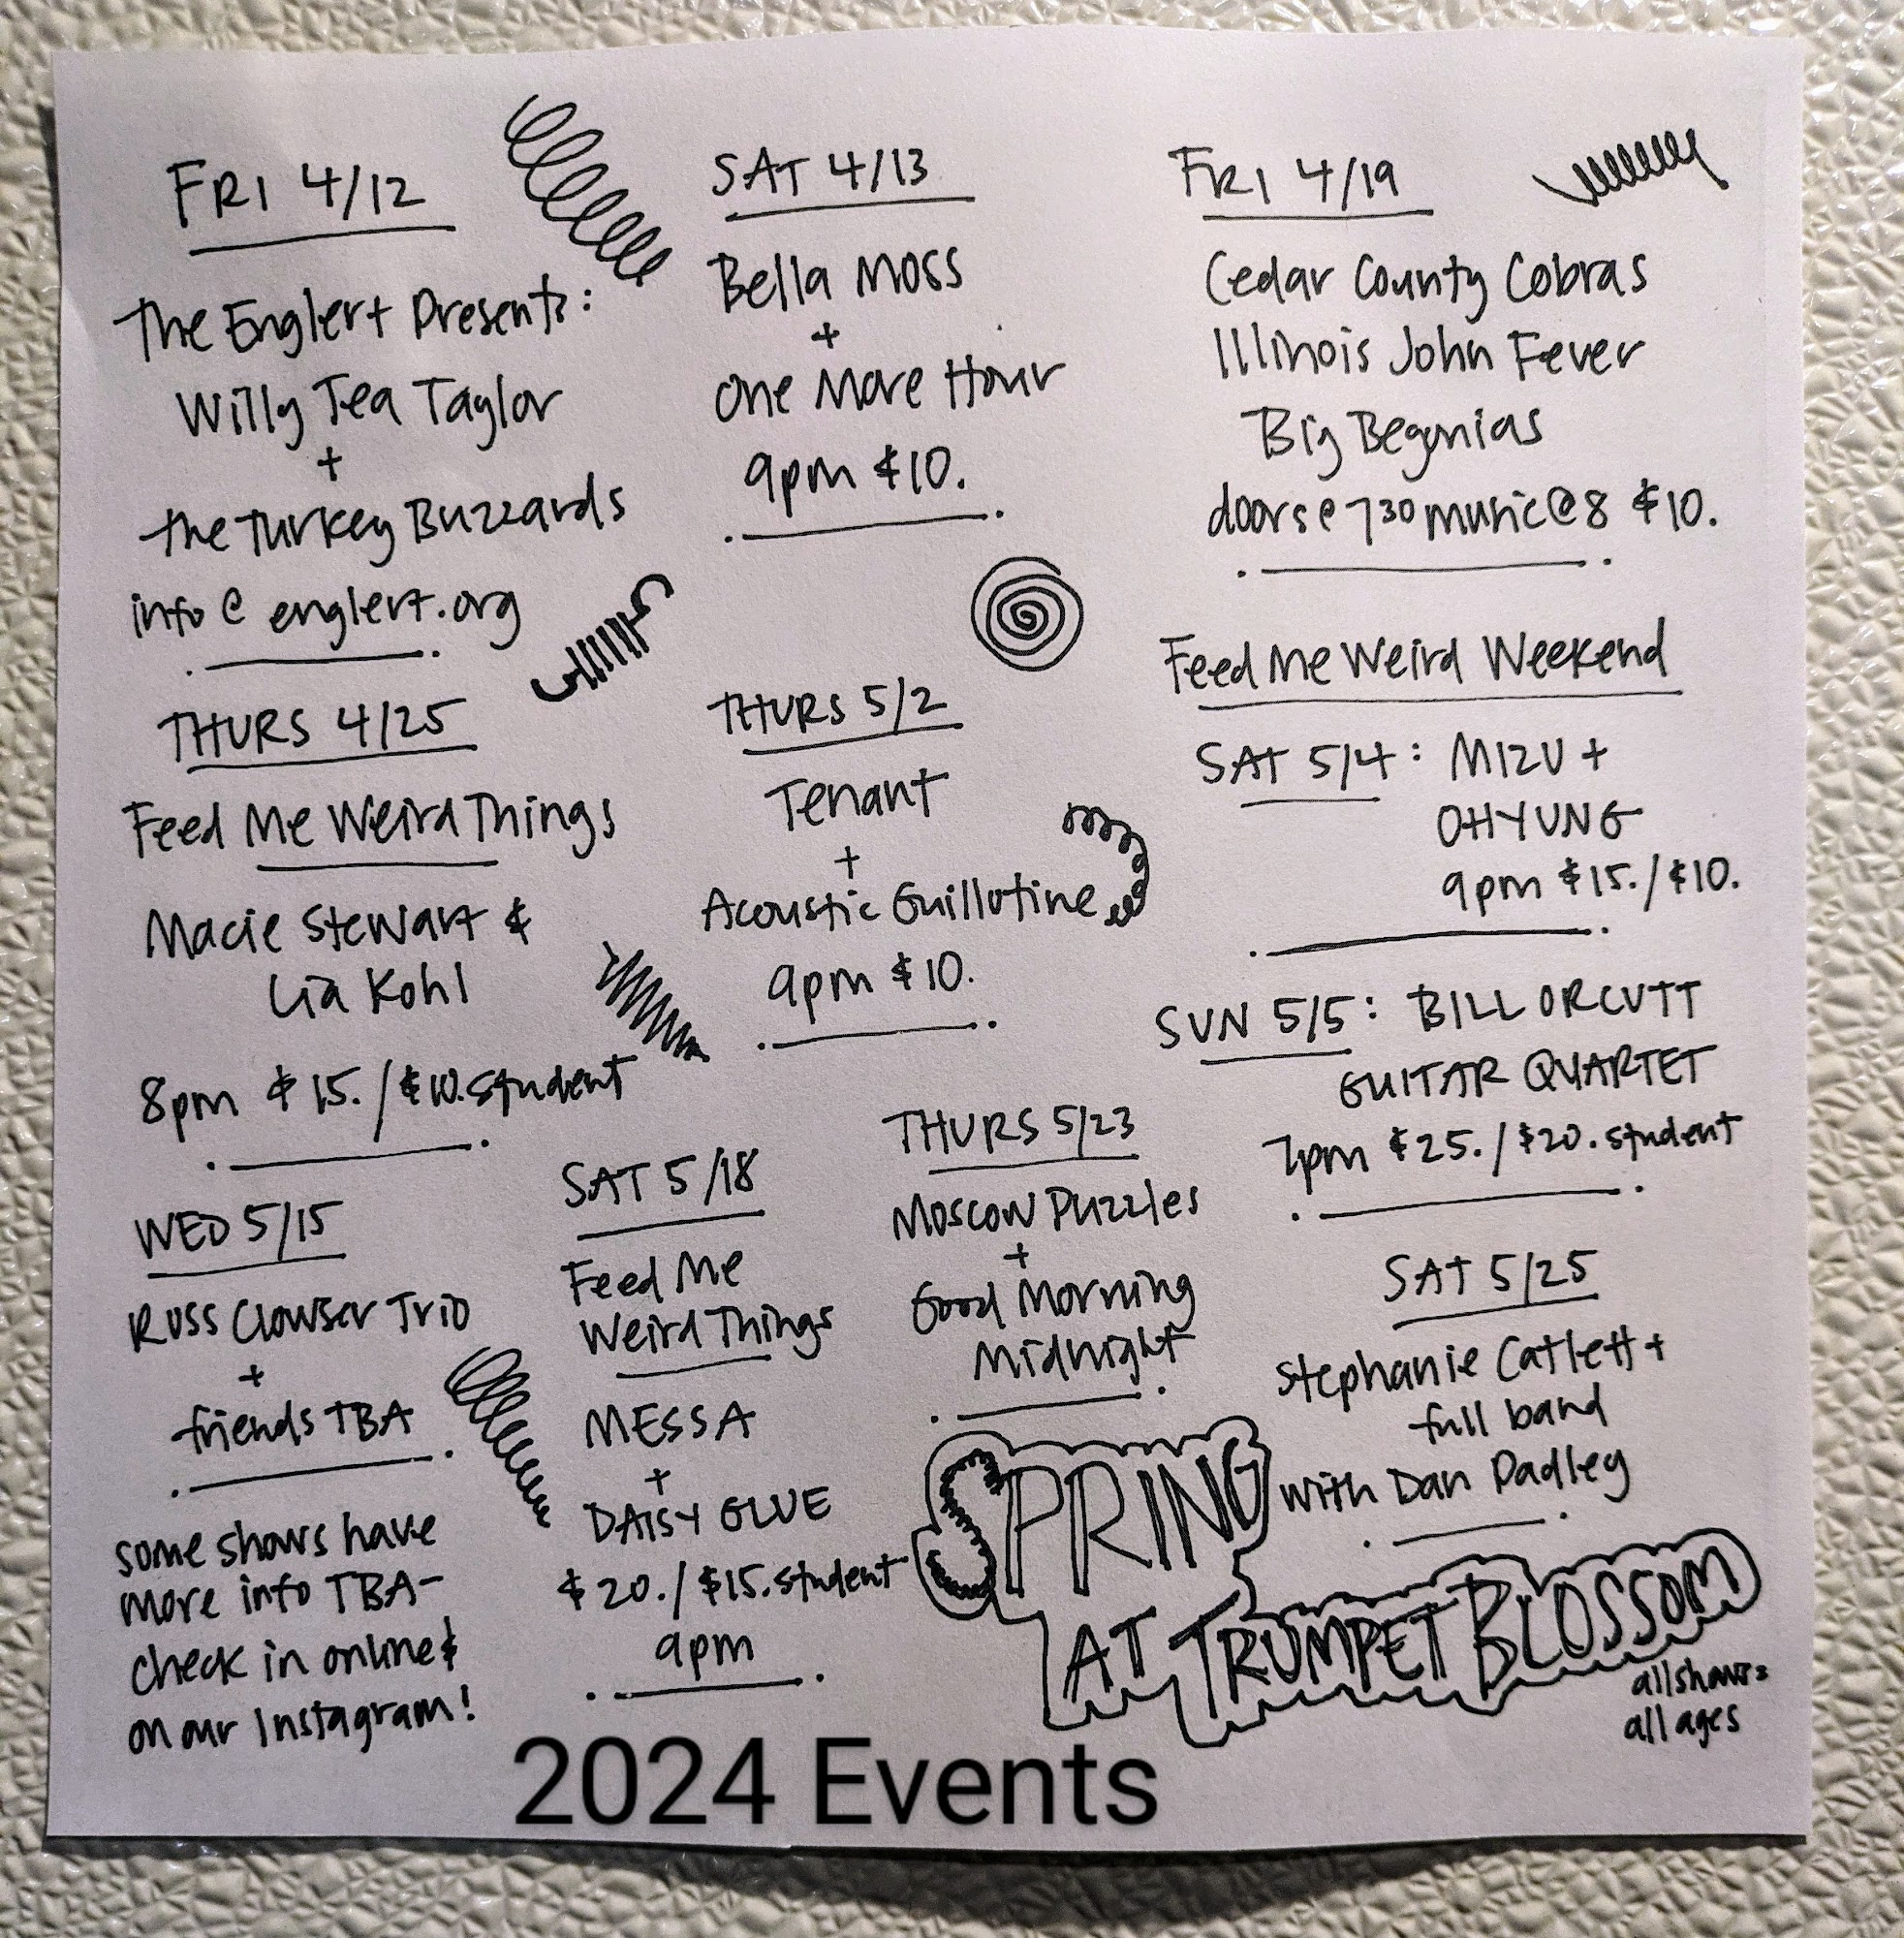 FRI 4/12
The Englert Presents:
Willy Tea Taylor
+
the Turkey Buzzards
info @ englert.org
SAT 4/13
Bella Moss
+
One More Hour
9pm $10.
FRI 4/19
Cedar County Cobras
Illinois John Fever
Big Begonias
doors @ 730 music @ 8 $10.
THURS 4/25
Feed Me Weird Things
Macie Stewart &
Lia Kohl
8pm $15./$10. student
THURS 5/2
Tenant
+
Acoustic Guillotine
9pm $10.
Feed Me Weird Weekend
SAT 5/4: MIZU +
OHYUNG
9pm $15./$10.
SUN 5/5: BILL ORCUTT
GUITAR QUARTET
7pm $25./$20. student
WED 5/15
Russ Clowser Trio
+
friends TBA
SAT 5/18
Feed Me
Weird Things
MESSA
+
DAISY GLUE
$20./$15. student
9pm
THURS 5/23
Moscow Puzzles
+
Good Morning
Midnight
SAT 5/25
Stephanie Catlett +
full band
with Dan Padley
some shows have
more info TBA-
check in online &
on our Instagram!
SPRING
AT TRUMPET BLOSSOM
all shows =
all ages
2024 Events